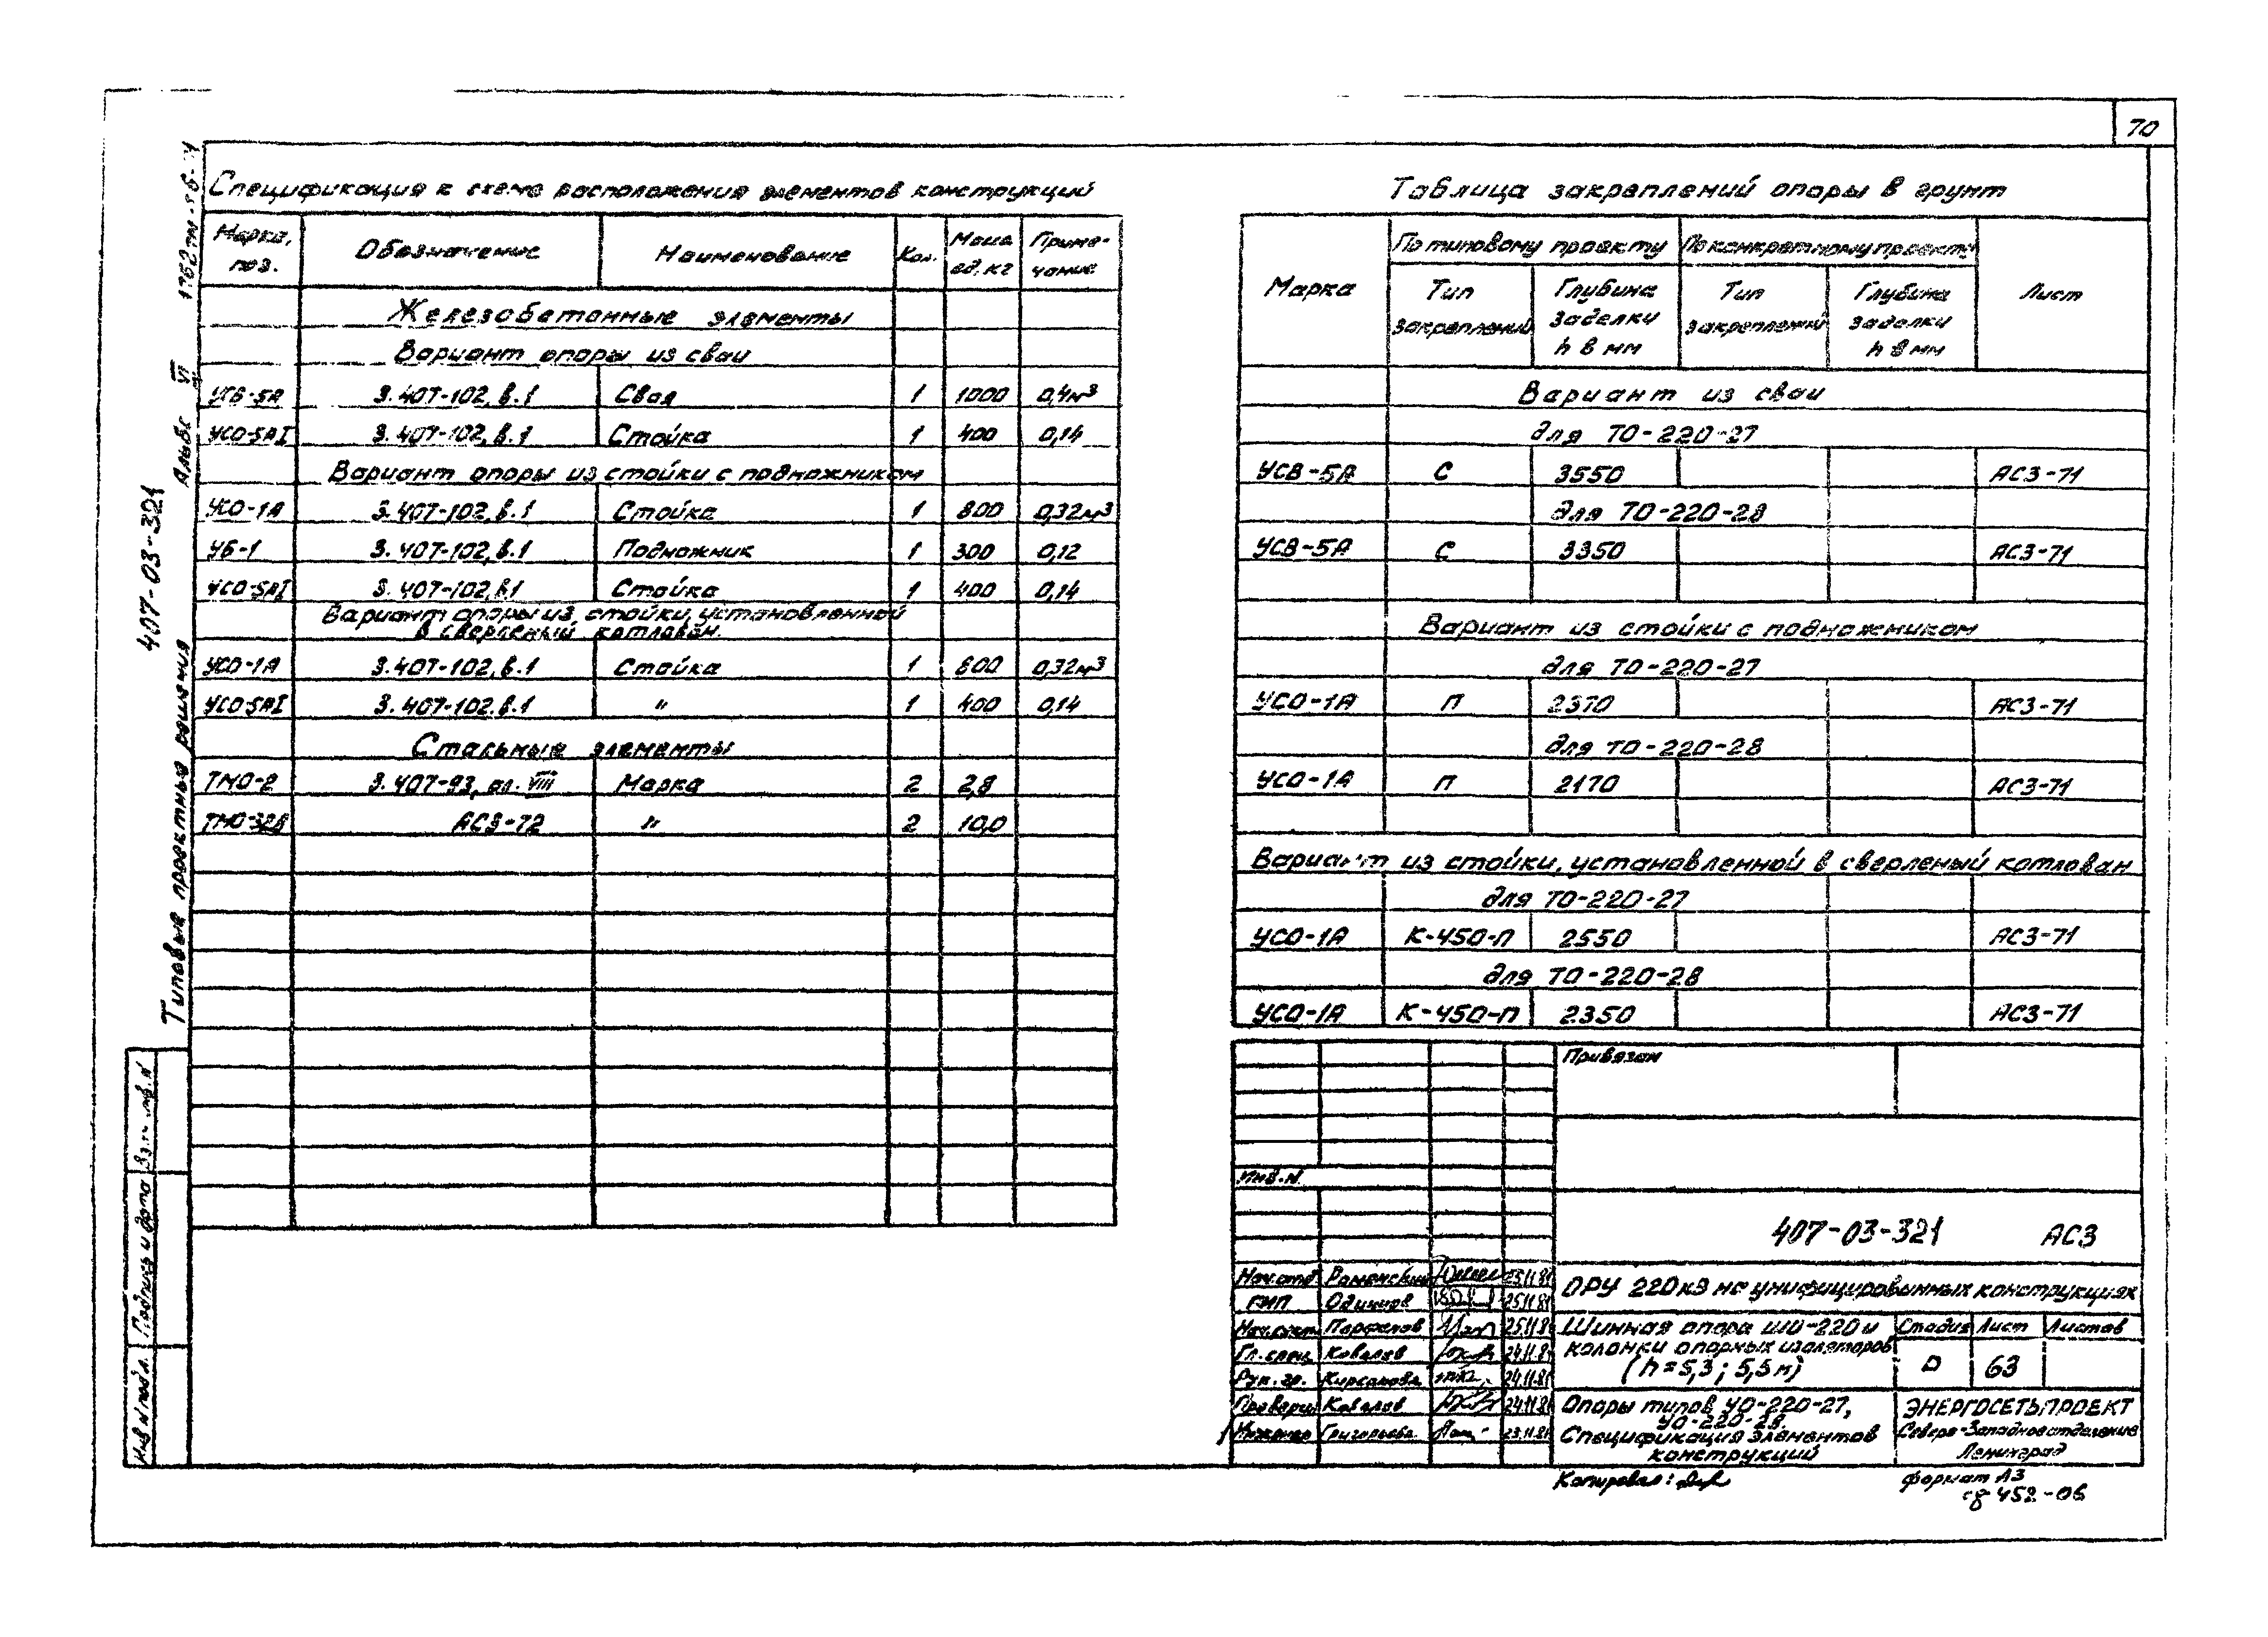 70
Спецификация к схеме расположения элементов конструкций
Марка, поз. Обозначение Наименование Кол. Масса ед. кг Примечание
Железобетонные элементы
Вариант опоры из сваи
УСВ-5А 3.407-102, в.1 Свая 1 1000 0,4м³
УСО-5АI 3.407-102, в.1 Стойка 1 400 0,14
Вариант опоры из стойки с подножником
УСО-1А 3.407-102, в.1 Стойка 1 800 0,32м³
УБ-1 3.407-102, в.1 Подножник 1 300 0,12
УСО-5АI 3.407-102, в.1 Стойка 1 400 0,14
Вариант опоры из стойки, установленной
в сверленый котлован.
УСО-1А 3.407-102, в.1 Стойка 1 800 0,32м³
УСО-5АI 3.407-102. в.1 " 1 400 0,14
Стальные элементы
ТМО-2 3.407-93, ал. VIII Марка 2 2,8
ТМО-32В АС3-72 " 2 10,0
Таблица закреплений опоры в грунт
Марка По типовому проекту По конкретному проекту Лист
Тип закреплений Глубина заделки h в мм Тип закреплений Глубина заделки h в мм
Вариант из сваи
для ТО-220-27
УСВ-5А С 3550 АС3-71
для ТО-220-28
УСВ-5А С 3350 АС3-71
Вариант из стойки с подножником
для ТО-220-27
УСО-1А П 2370 АС3-71
для ТО-220-28
УСО-1А П 2170 АС3-71
Вариант из стойки, установленной в сверленый котлован
для ТО-220-27
УСО-1А К-450-П 2550 АС3-71
для ТО-220-28
УСО-1А К-450-П 2350 АС3-71
Привязан
Инв. N
407-03-321 АС3
Нач.отд. Роменский 25.11.81
ГИП Одинцов 25.11.81
Парфенов 25.11.81
Гл. спец. Ковалев 24.11.81
Рук. гр. Кирсанова 24.11.81
Проверил Ковалев 24.11.81
Инженер Григорьева 23.11.81
ОРУ 220кВ на унифицированных конструкциях
Шинная опора ШО-220 и
колонки опорных изоляторов
(h=5,3; 5,5м)
Стадия Лист Листов
Р 63
Опоры типов УО-220-27,
УО-220-28.
Спецификация элементов
конструкций
ЭНЕРГОСЕТЬПРОЕКТ
Северо-Западное отделение
Ленинград
Копировал:
формат А3
сф 452-06
407-03-321
Типовые проектные решения
Альбом VI
Взам. инв. N
Подпись и дата
Инв N подл.